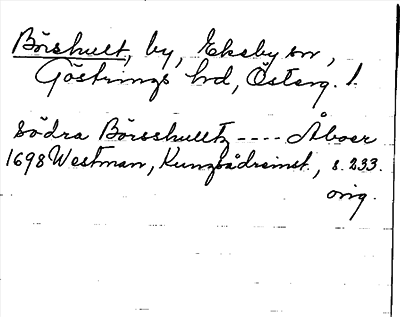 Börshult, by, Eksby sn,
Göstrings hd, Österg. l.
Södra Börsshulltz ---- Åboer
1698 Westman, Kungsådreinst., s. 233.
orig.